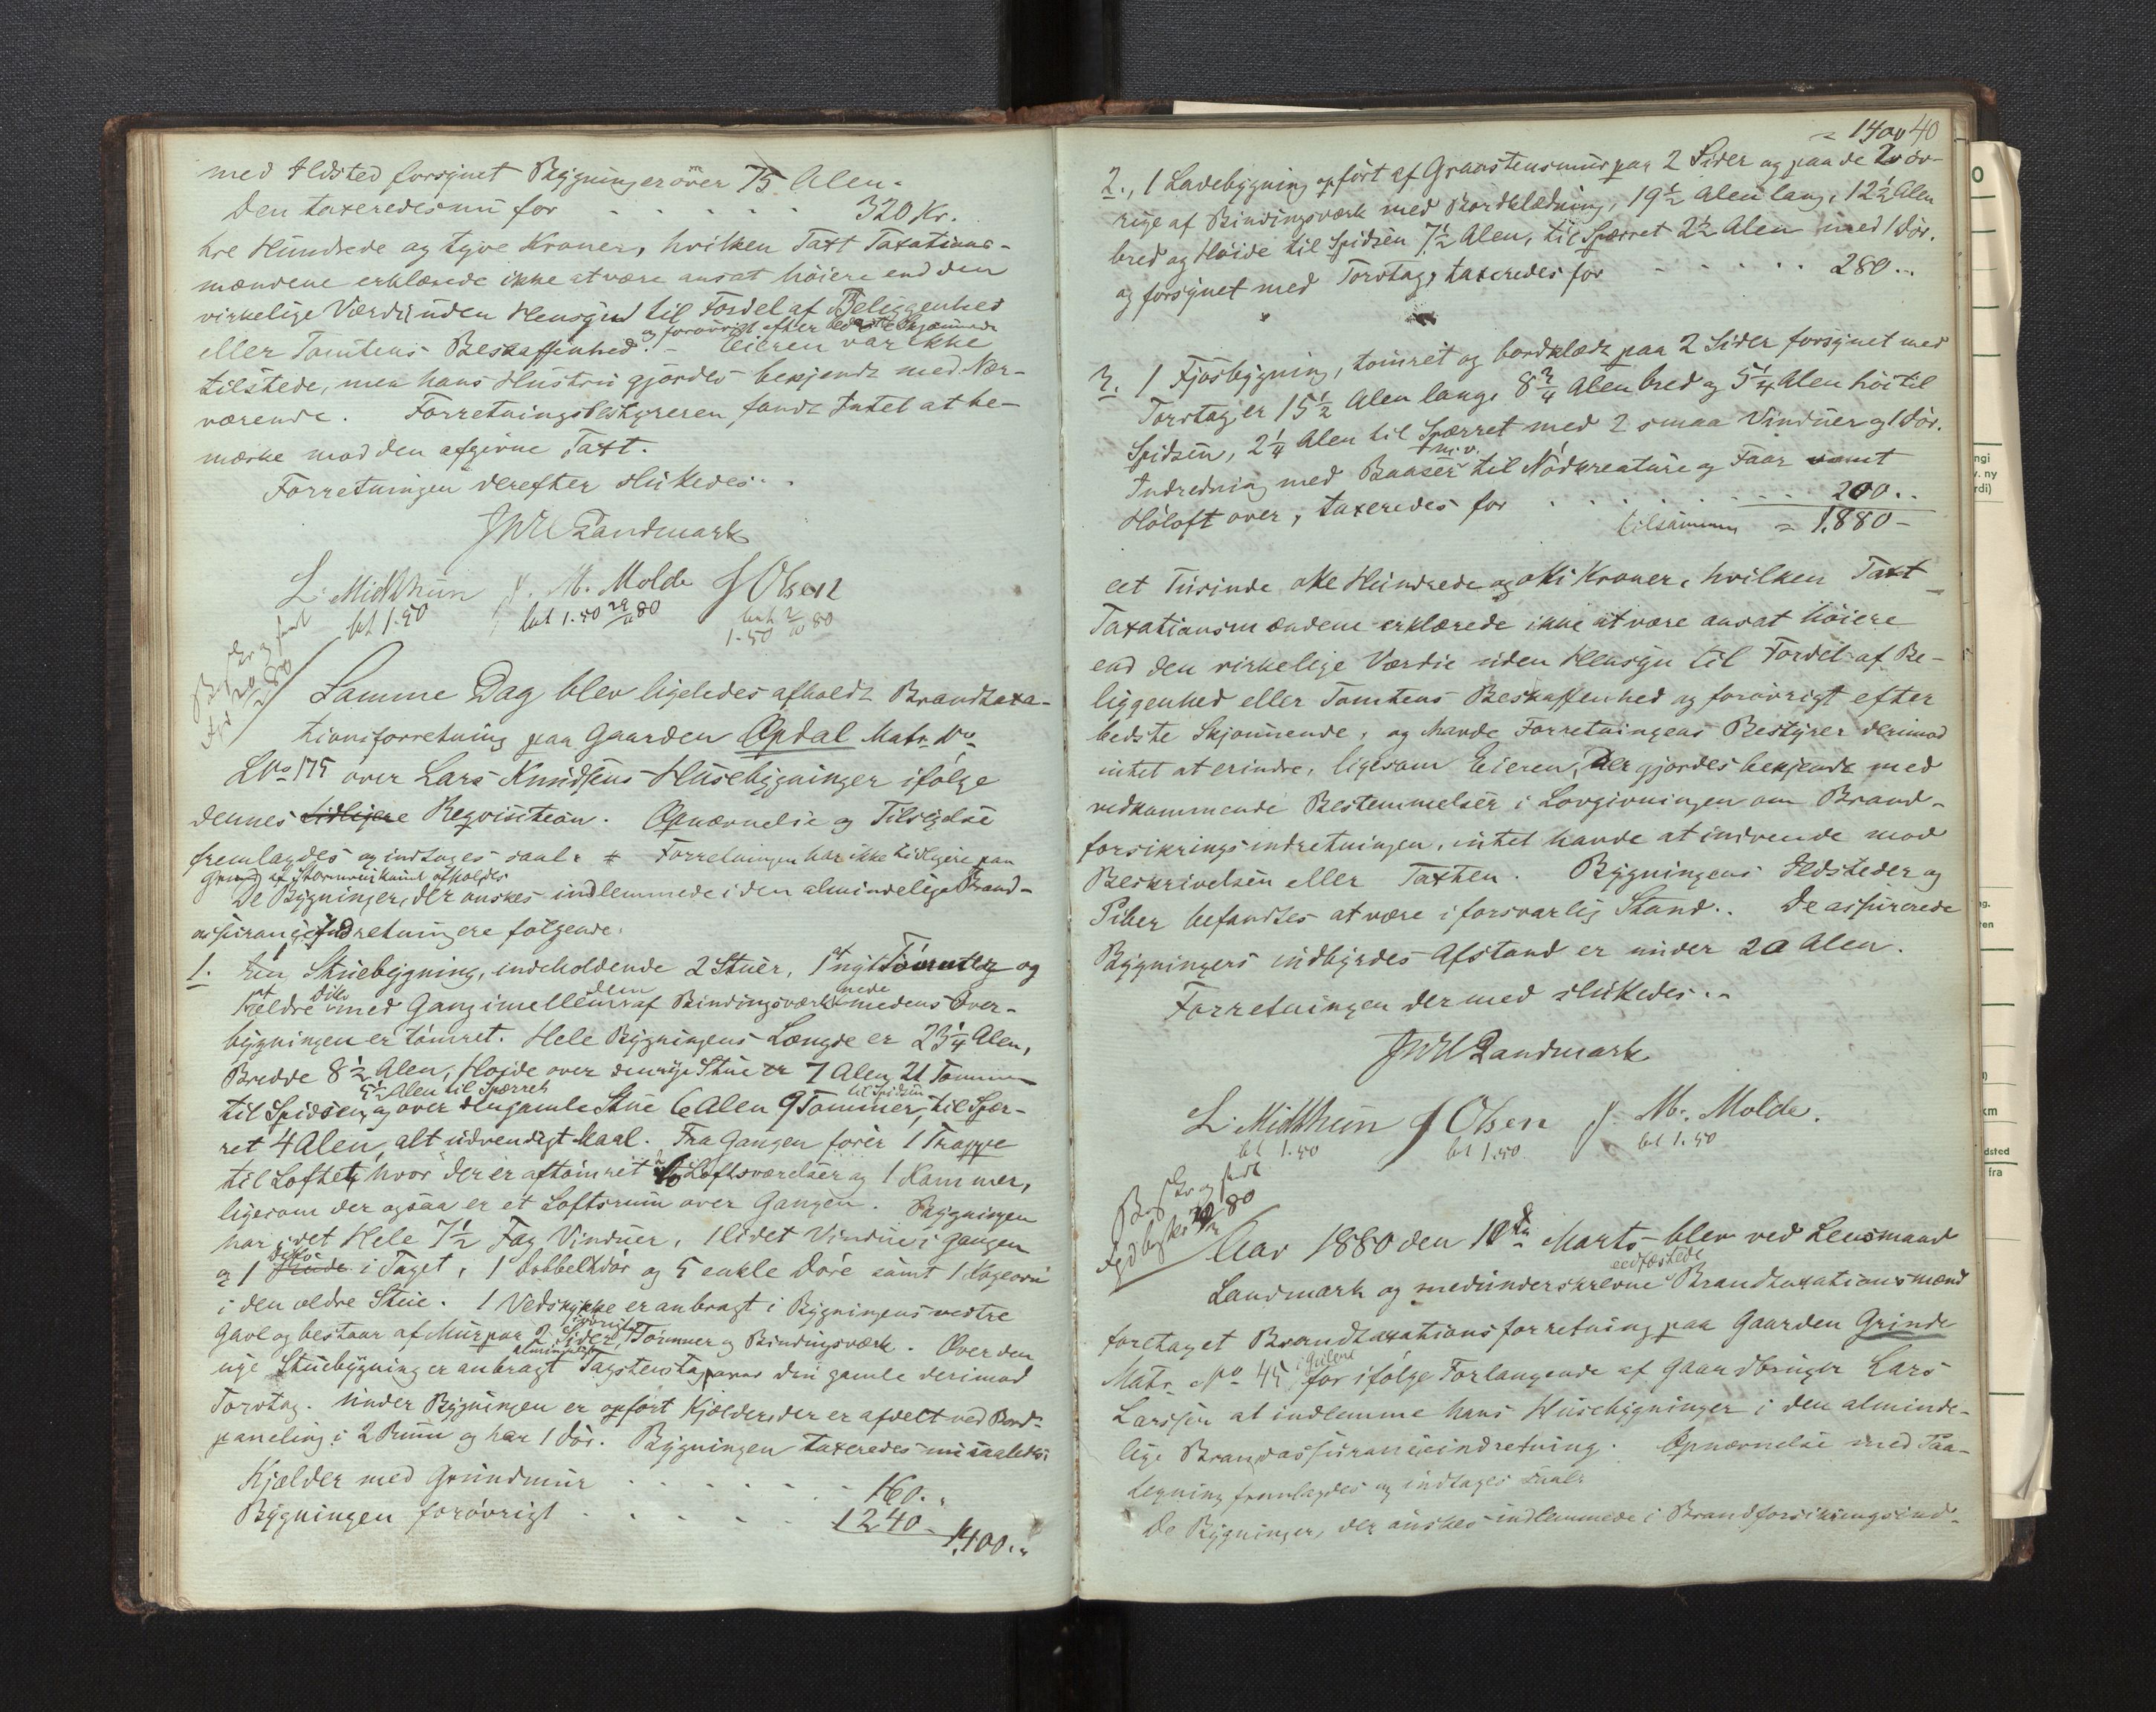 med Ildsted forsynet Bygninger over 75 Alen.
Den taxeredes nu for - - - - - 320 Kr.
tre Hundrede og tyve Kroner, hvilken Taxt Taxations-
mændene erklærede ikke at være ansat høiere end den
virkelige Værdi uden Hensyn til Fordel af Beliggenhed
eller Tomtens Beskaffenhed og forøvrigt efter bedste Skjønnende. - Eieren var ikke
tilstede, men hans Hustru gjordes bekjendt med Nær-
værende. Forretningsbestyreren fandt Intet at be-
mærke mod den afgivne Taxt.
Forretningen derefter sluttedes..
JWE Landmark
L. Midthun J. M. Molde J Olsen
bet 1.50 bet 1.50 29/11 80 bet 2/11 80
1.50
Samme Dag blev ligeledes afholdt Brandtaxa-
tionsforretning paa Gaarden Opdal Matr No
LNo 175 over Lars Knudsens Husebygninger ifølge
dennes tidligere Reqvisition. Opnævnelse og Tilsigelse
fremlagdes og indtages saal: * Forretningen har ikke tidligere paa
Grund af kunnet afholdes
De Bygninger, der ønskes indlemmede i den almindelige Brand-
assuranceindretning ere følgende:
1. En Stuebygning, indeholdende 2 Stuer, 1 et nyt Tømret og
1 et ældre dito med Gang imellem dem af Bindingsværk nede medens Over-
bygningen er tømret. Hele Bygningens Længde er 23 1/4 Alen,
Bredde 8 1/2 Alen, Høide over den nye Stue er 7 Alen 21 Tommer
til Spidsen, 5 1/2 Alen til Spærret og over den gamle Stue 6 Alen 9 Tommer til Spidsen, til Spær-
ret 4 Alen, alt udvendigt Maal. Fra Gangen fører 1 Trappe
til Loftet, hvor der er aftømret 2 Loftsværelser og 1 Kammer,
ligesom der ogsaa er et Loftsrum over Gangen. Bygningen
har i det Hele 7 1/2 Fag Vinduer, 1 lidet Vindue i Gangen
og 1 dito i Taget, 1 dobbelt Dør og 5 enkle Døre samt 1 Kogeovn
i den ældre Stue. 1 Vedskykke er anbragt i Bygningens vestre
Gavl og bestaar af Mur paa 2 Sider, forøvrigt Tømmer og Bindingsværk. Over den
nye Stuebygning er anbragt almindeligt Tagstenstag, over den gamle derimod
Torvtag. Under Bygningen er opført Kjælder, der er afdelt ved Bord-
paneling i 2 Rum og har 1 Dør. Bygningen taxeredes nu saaledes:
Kjælder med Grundmur - - - - - 160..
Bygningen forøvrigt - - - - - 1240. 1,400..
= 1400 40
2., 1 Ladebygning opført af Graastensmur paa 2 Sider og paa de 2 øv-
rige af Bindingsværk med Bordklædning, 19 1/2 Alen lang, 12 1/2 Alen
bred og Høide til Spidsen 7 1/2 Alen, til Spærret 2 1/2 Alen med 1 Dør.
og forsynet med Torvtag, taxeredes for - - - - - 280..
3. 1 Fjøsbygning, tømret og bordklædt paa 2 Sider forsynet med
Torvtag er 15 1/2 Alen lang, 8 3/4 Alen bred og 5 1/4 Alen høi til
Spidsen, 2 1/4 Alen til Spærret med 2 smaa Vinduer og 1 Dør.
Indredning med Baaser m.v. til Nødkreature og Faar samt
Høloft over, taxeredes for - - - - - 200..
tilsammen = 1,880-
eet Tusinde otte Hundrede og otti Kroner, hvilken Taxt
Taxationsmændene erklærede ikke at være ansat høiere
end den virkelige Værdie uden Hensyn til Fordel af Be-
liggenhed eller Tomtens Beskaffenhed og forøvrigt efter
bedste Skjønnende, og havde Forretningens Bestyrer derimod
intet at erindre, ligesom Eieren, der gjordes bekjendt med
vedkommende Bestemmelser i Lovgivningen om Brand-
forsikringsindretningen, intet havde at indvende mod
Beskrivelsen eller Taxten. Bygningens Ildsteder og
Piber befandtes at være i forsvarlig Stand.. De assurerede
Bygningers indbyrdes Afstand er under 20 Alen.
Forretningen dermed sluttedes..
JWE Landmark
L. Midthun J Olsen J. M. Molde.
bet 1.50 bet 1.50 bet 1.50
Aar 1880 den 10de Marts blev ved Lensmand
Landmark og medunderskrevne eedfæstede Brandtaxationsmænd
foretaget Brandtaxationsforretning paa Gaarden Grinde
Matr No 45 for ifølge Forlangende af Gaardbruger Lars
Larssen at indlemme hans Husebygninger i den alminde-
lige Brandassuranceindretning. Opnævnelse med Paa-
tegning fremlagdes og indtages saal:
De Bygninger, der ønskes indlemmede i Brandforsikringsind-